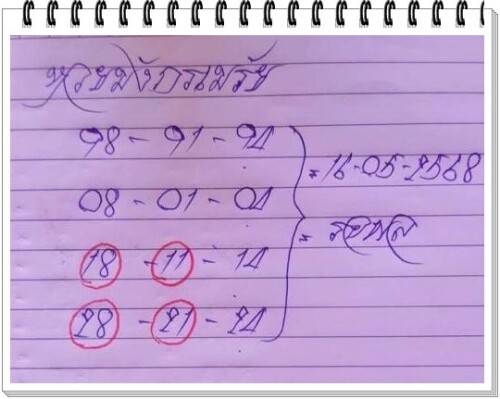 หวยมังกรเมรัย
98 - 91 - 94
08 - 01 - 04
18 - 11 - 14
28 - 21 - 24
= 16-05-2568
= รอผล